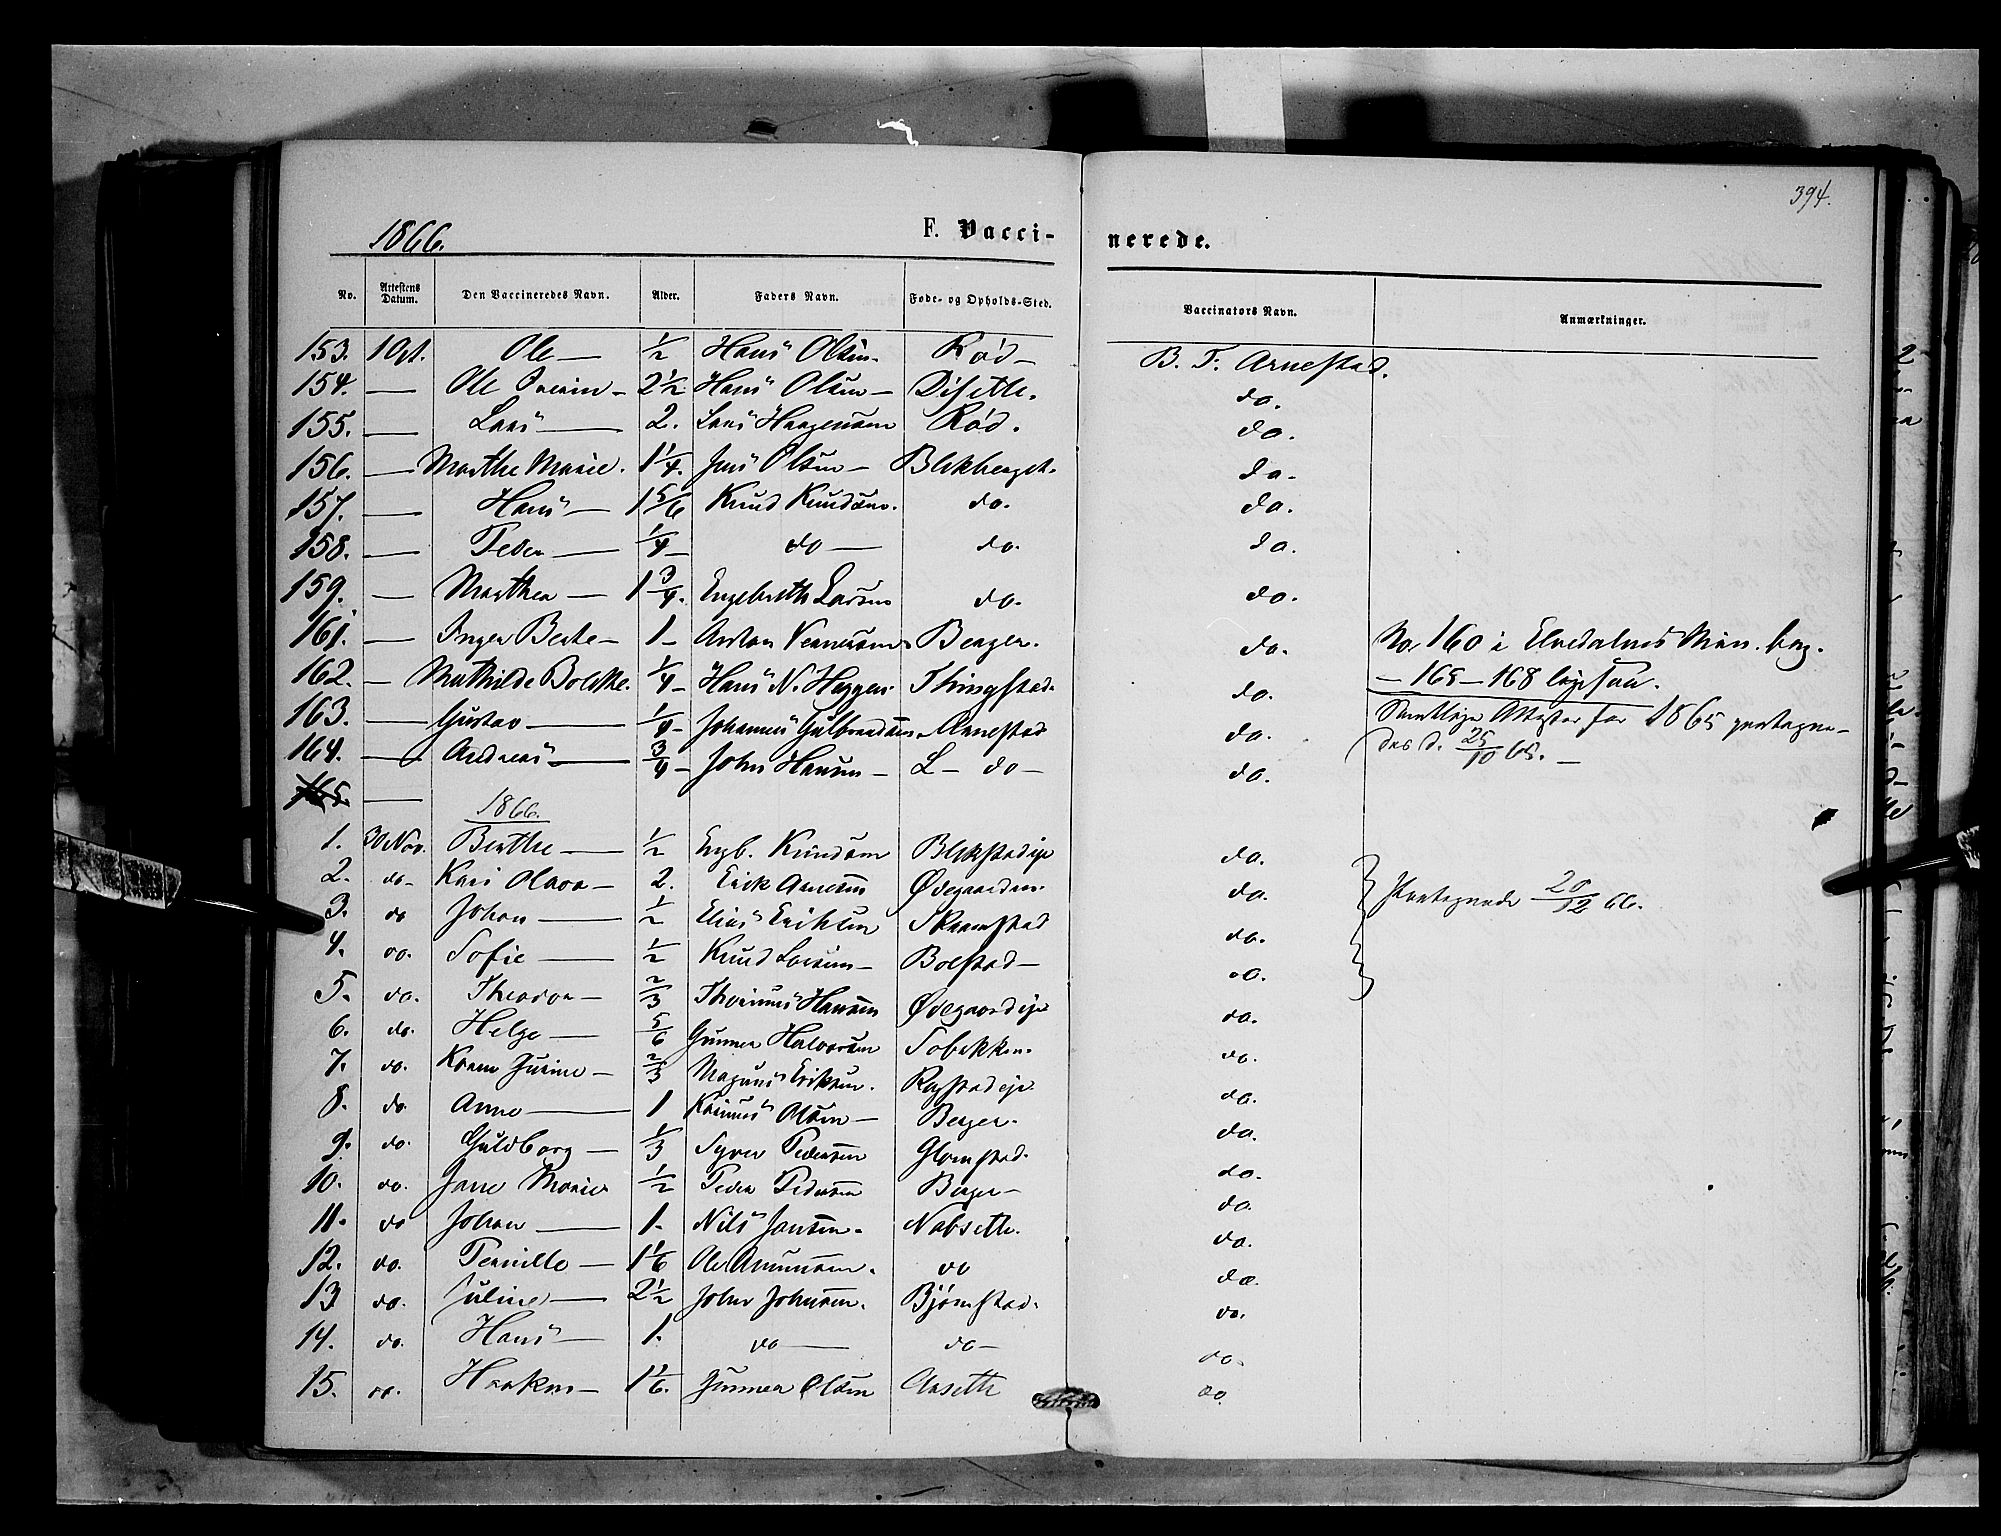 394.
1866.
F. Vaccinerede.
No. Attestens Datum. Den Vaccineredes Navn. Alder. Faders Navn. Føde- og Opholds-Sted. Vaccinators Navn. Anmærkninger.
153. 1 Oct. Ole — 1/2 Hans Olsen - Rød - B. T. Arnestad.
154. — Ole - 2 1/2 Hans Olsen - Disette. do.
155. — Lars — 2. Lars Haagensen Rød. do.
156. — Marthe Marie. 1 1/4. Jens Olsen - Blekberget. do.
157. — Hans — 1 5/6 Knud Knudsen. do. do.
158. — Peder — 1/4 - do — do. do.
159. — Marthea — 1 3/4. Engebreth Larsen do. do.
161. — Inger Berte - 1 - Anton Berger. do. No. 160 i Min. bog.
162. — Mathilde Bolette. 1/4 - Hans N. Haggen. Thingstad. do. — 165 - 168 .
163. — Gustav — 1/4 - Johannes Gulbrandsen Arnestad do. Samtlige Attester for 1865
164. — Andreas — 3/4 - John Hansen - L - do - do. d. 25/10 65. —
165. —
1866.
1. 30 Nov. Berthe — 1/2 Engb. Knudsen Blekstadeje do.
2. do - Kari Olava - 2. Erik Arnesen Ødegaarden. do. 20/12 66.
3. do Johan — 1/2 Elias Eriksen Skramstad do.
4. do. Sofie — 1/2 Knud Larsen - Bolstad - do.
5. do. Theodor - 2/3 Thorinus Hansen Ødegaardeje do.
6. do. Helge — 5/6 Gunner Halvorsen Sobekken. do.
7. do. Karen Jurine - 2/3 Magnus Eriksen. do.
8. do. Anne — 1 Karinus Olsen - Berger. do.
9. do. Guldborg — 1/3 Syver Pedersen Glomstad. do.
10. do. Jane Marie 1/2 Peder Pedersen Berger - do.
11. do Johan — 1. Nils Jansen. Nabsette. do.
12. do. Pernille - 1 1/6 Ole Amundsen. do do.
13 do. Juline — 2 1/2 John Johnsen. Bjørnstad. do.
14. do. Hans — 1. do — do - do.
15. do. Haaken - 1 1/6. Gunner Olsen Aasette do.